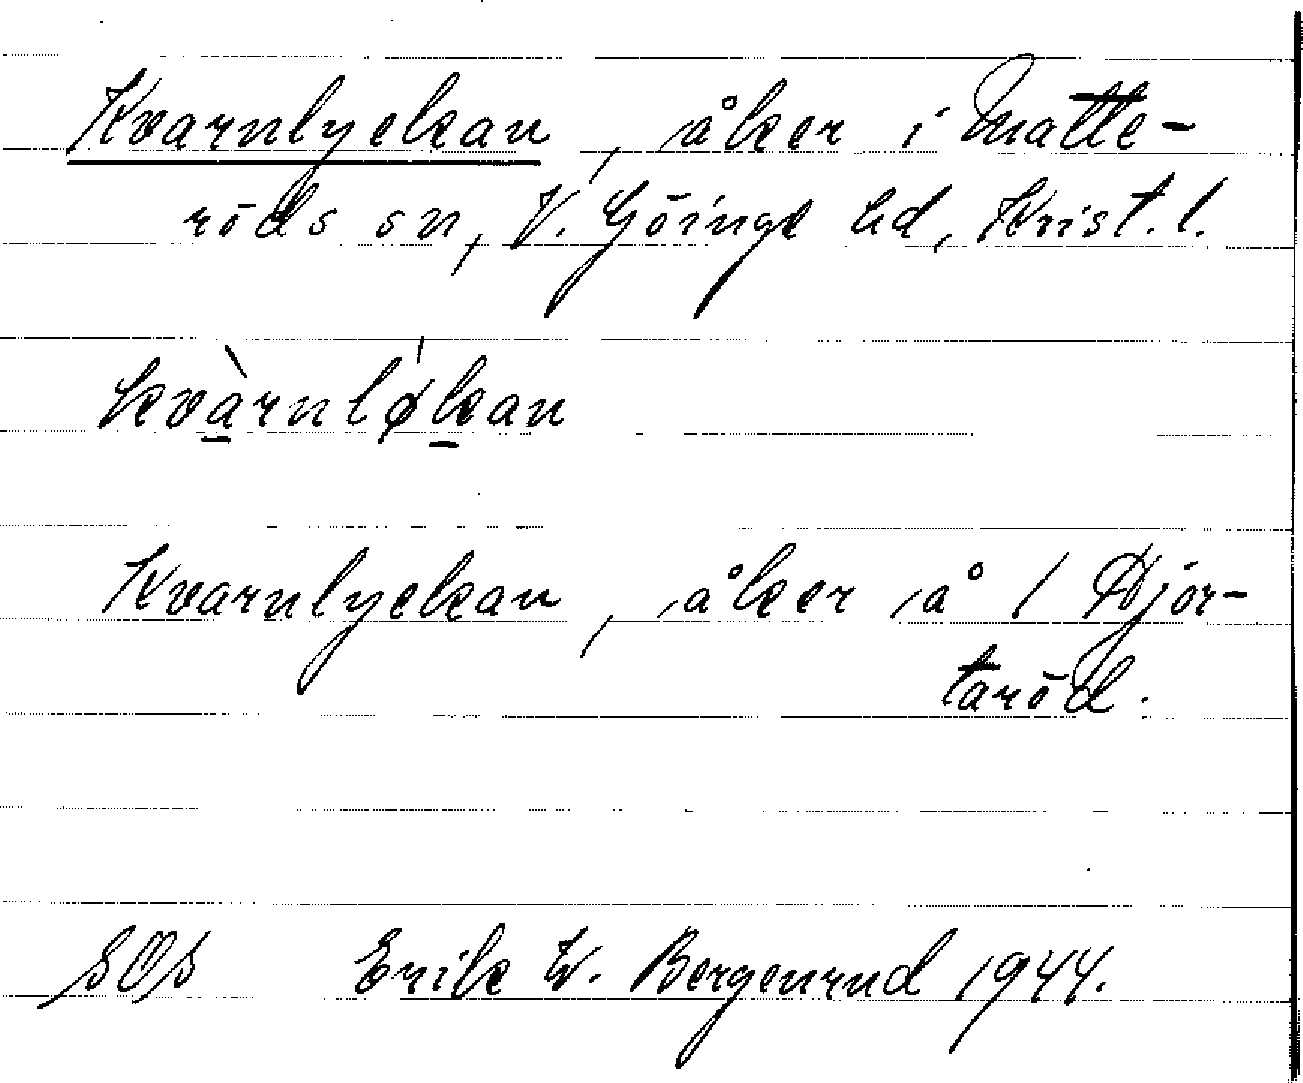 Kvarnlyckan, åker i Matte-
röds sn, V. Göinge hd, Krist. l.
kvàrnløkan
Kvarnlyckan, åker å 1 Hjor-
taröd.
SOS Erik W. Bergenrud 1944.